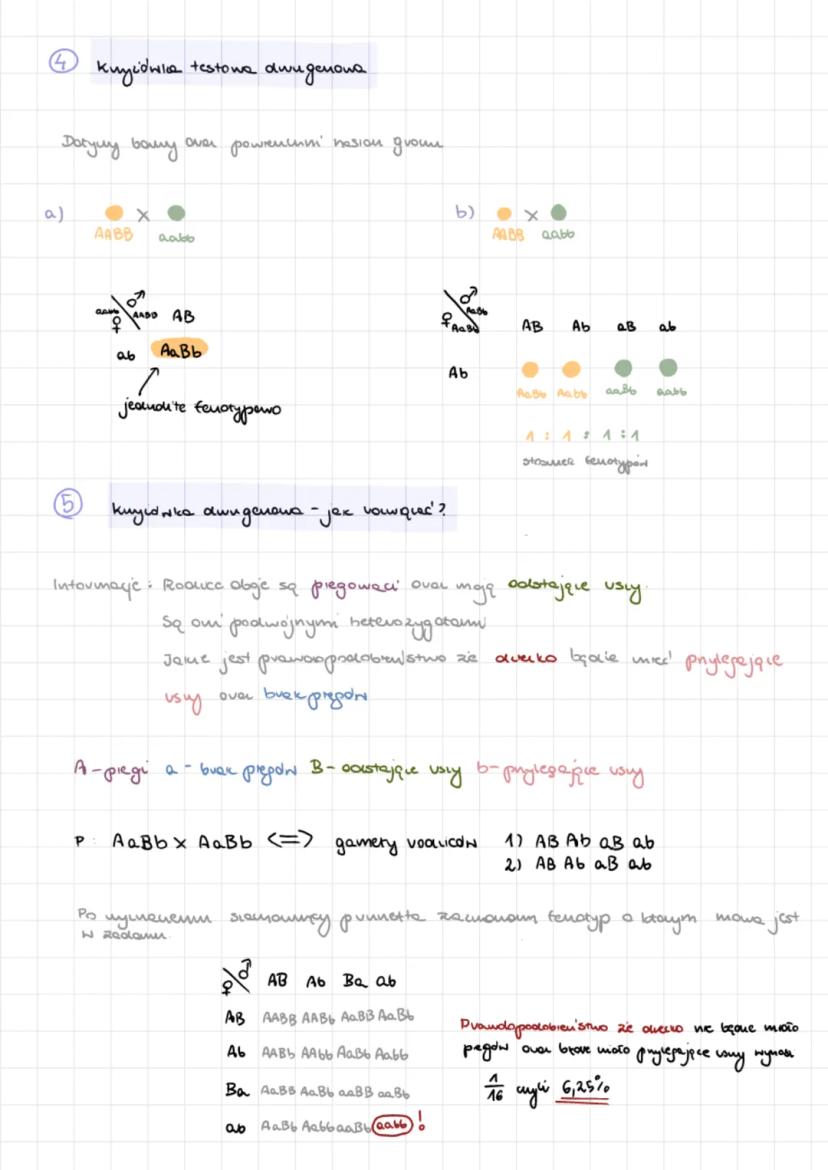 4 Krzyżówka testowa dwugenowa
Dotyczy barwy oraz powierzchni nasion grochu
a) x b) x
AABB aabb AABB aabb
aabb ♂ AABB AB
♀
ab AaBb
jednolite fenotypowo
♂ AaBb
♀ AaBb AB Ab aB ab
Ab
AaBb Aabb aaBb aabb
1 : 1 : 1 : 1
stosunek fenotypów
5 Krzyżówka dwugenowa - jak rozwiązać?
Informacje: Rodzice oboje są piegowaci oraz mają odstające uszy.
Są oni podwójnymi heterozygotami
Jakie jest prawdopodobieństwo że dziecko będzie mieć przylegające
uszy oraz brak piegów
A - piegi a - brak piegów B - odstające uszy b - przylegające uszy
P: AaBb x AaBb <=> gamety rodziców 1) AB Ab aB ab
2) AB Ab aB ab
Po wymazeniu szachownicy punnetta zaznaczam fenotyp o którym mowa jest
w zadaniu.
♀ ♂ AB Ab Ba ab
AB AABB AABb AaBB AaBb
Ab AABb AAbb AaBb Aabb
Ba AaBB AaBb aaBB aaBb
ab AaBb Aabb aaBb aabb !
Prawdopodobieństwo że dziecko nie będzie miało
piegów oraz będzie miało przylegające uszy wynosi
1/16 czyli 6,25%